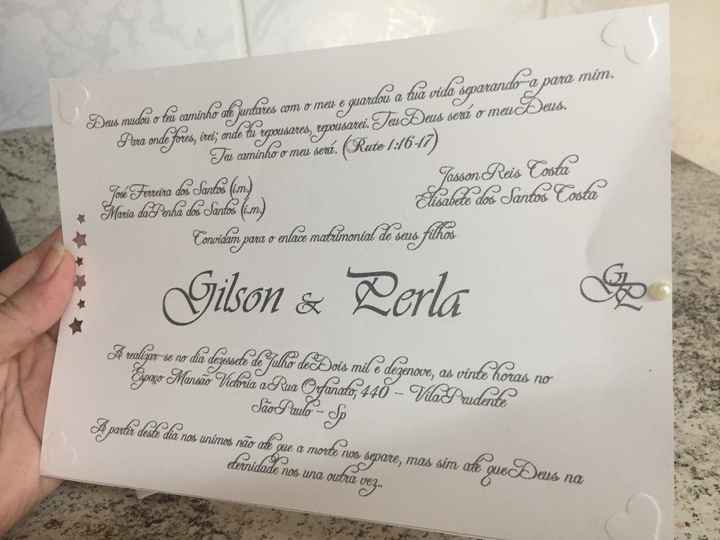 Deus mudou o teu caminho até juntares com o meu e guardou a tua vida separando-a para mim.
Para onde fores, irei; onde tu repousares, repousarei. Teu Deus será o meu Deus.
Teu caminho o meu será. (Rute 1:16-17)
José Ferreira dos Santos (i.m.)
Maria da Penha dos Santos (i.m.)
Jasson Reis Costa
Elisabete dos Santos Costa
Convidam para o enlace matrimonial de seus filhos
Gilson & Perla
GP
A realizar-se no dia dezessete de Julho de Dois mil e dezenove, as vinte horas no
Espaço Mansão Victoria a Rua Orfanato, 440 - Vila Prudente
São Paulo - Sp
A partir deste dia nos unimos não até que a morte nos separe, mas sim até que Deus na
eternidade nos una outra vez.